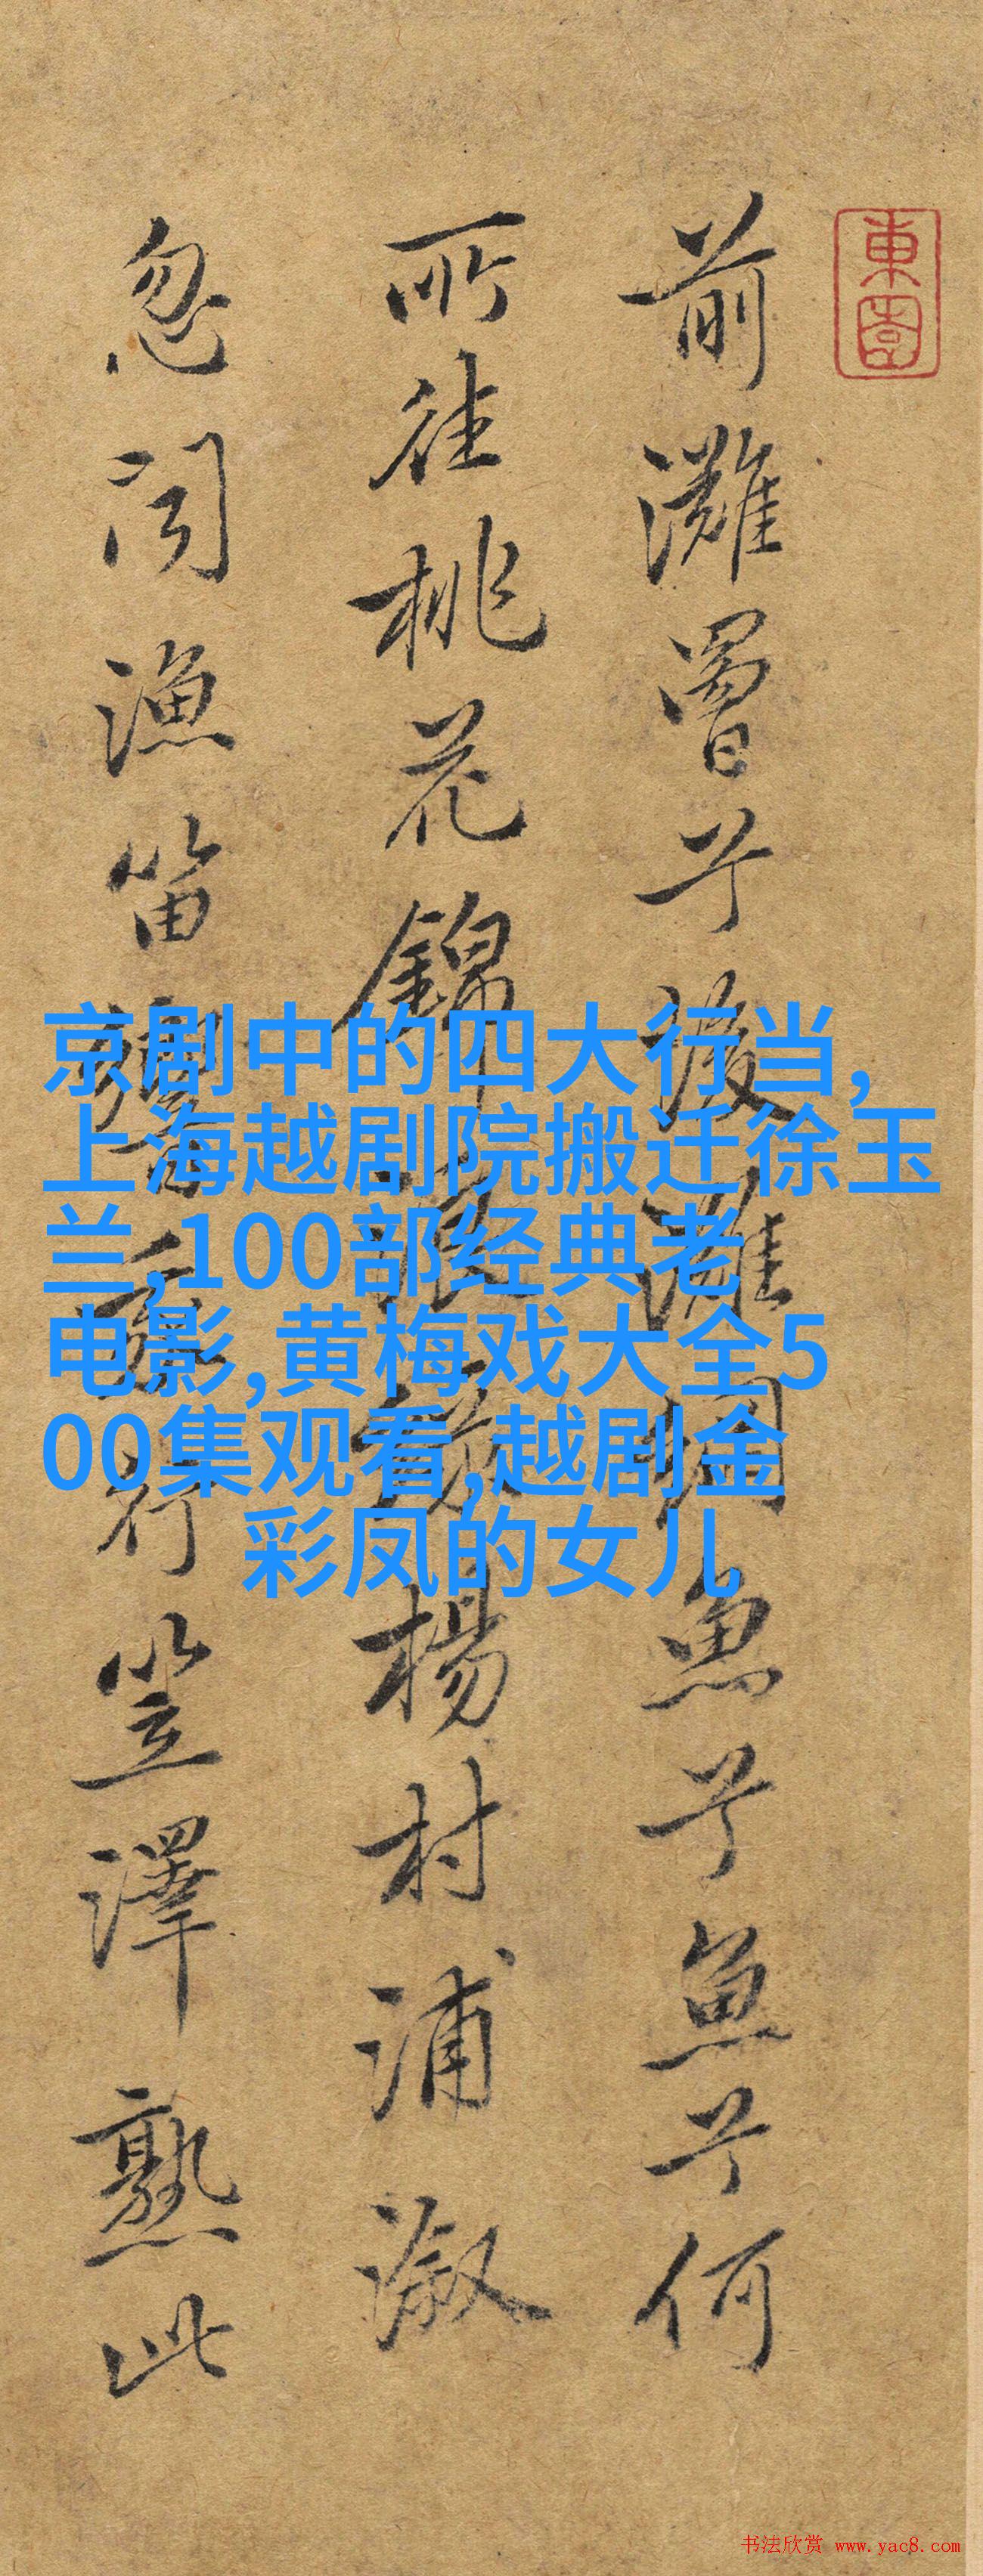 東園
前灘罾兮後灘網魚兮魚兮何
所往桃花錦浪綠楊村浦溆
忽聞漁笛響我行笠澤熟此
京剧中的四大行当,
上海越剧院搬迁徐玉
兰,100部经典老
电影,黄梅戏大全5
00集观看,越剧金
彩凤的女儿
书法欣赏 www.yac8.com